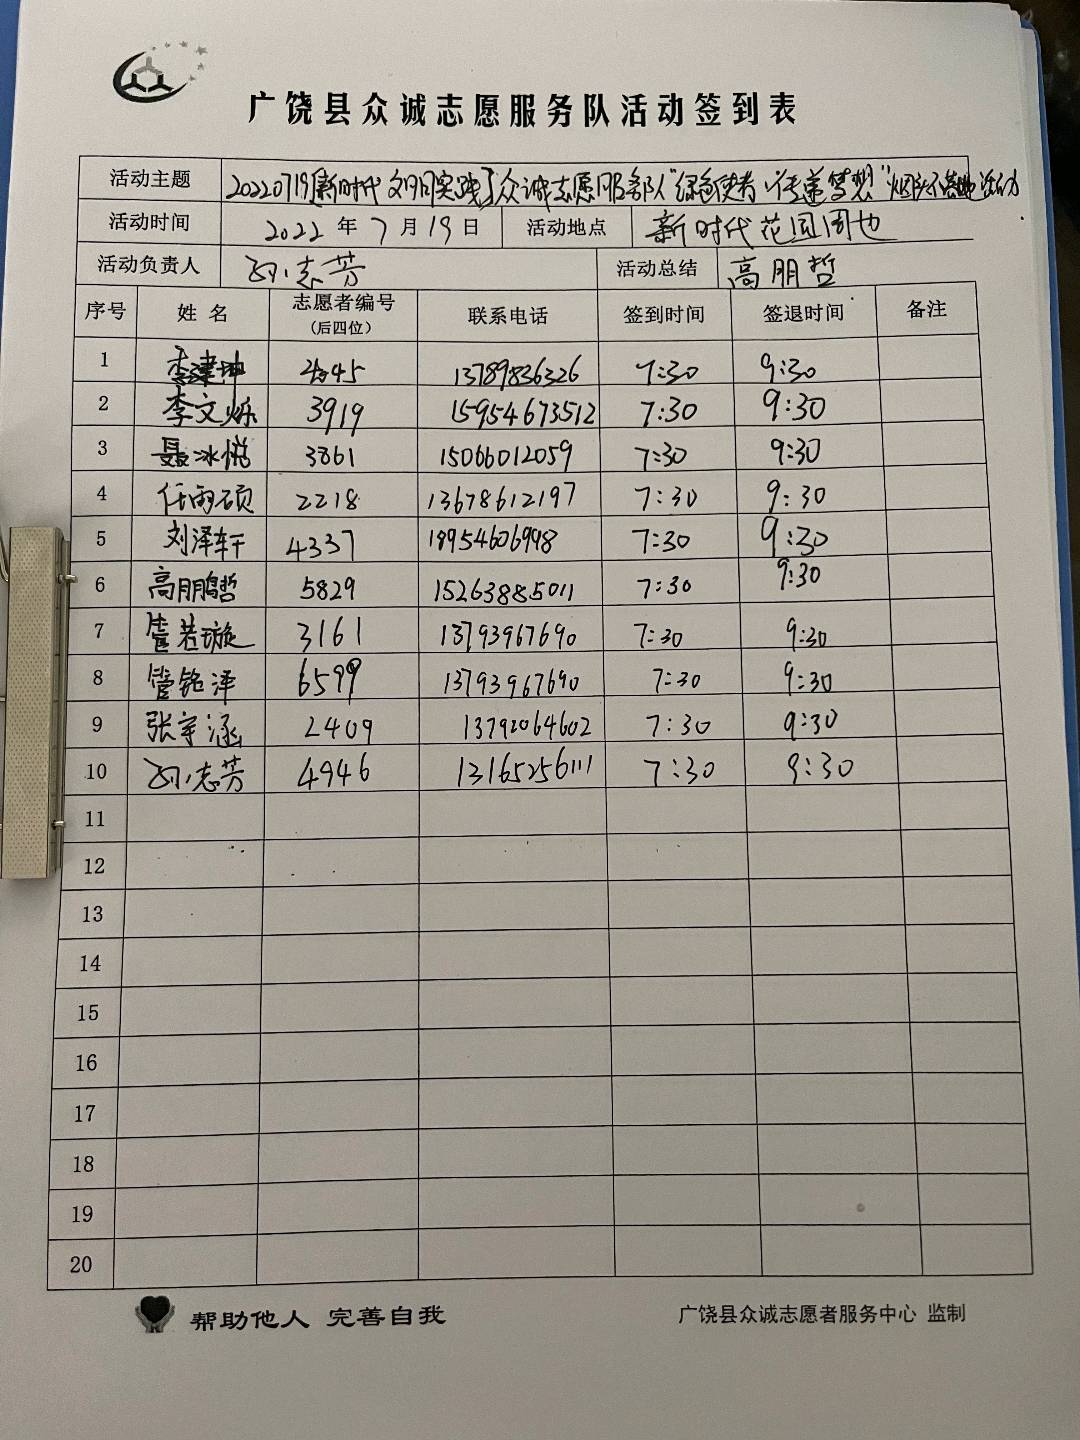 广饶县众诚志愿服务队活动签到表
活动主题 20220719[新时代文明实践]众诚志愿服务队"绿色使者 传递梦想"烟头不落地活动
活动时间 2022年7月19日 活动地点 新时代花园周边
活动负责人 孙志芳 活动总结 高朋哲
序号 姓名 志愿者编号(后四位) 联系电话 签到时间 签退时间 备注
1 李建坤 13789836326 7:30 9:30
2 李文烁 3919 15954673512 7:30 9:30
3 聂冰悦 3861 15066012059 7:30 9:30
4 任雨硕 2218 13678612197 7:30 9:30
5 刘泽轩 4337 18954606998 7:30 9:30
6 高朋哲 5829 15263885011 7:30 9:30
7 管若璇 3161 13793967690 7:30 9:30
8 管铭泽 6599 13793967690 7:30 9:30
9 张宇涵 2409 13792064602 7:30 9:30
10 孙志芳 4946 13165256111 7:30 9:30
11
12
13
14
15
16
17
18
19
20
帮助他人 完善自我 广饶县众诚志愿者服务中心 监制